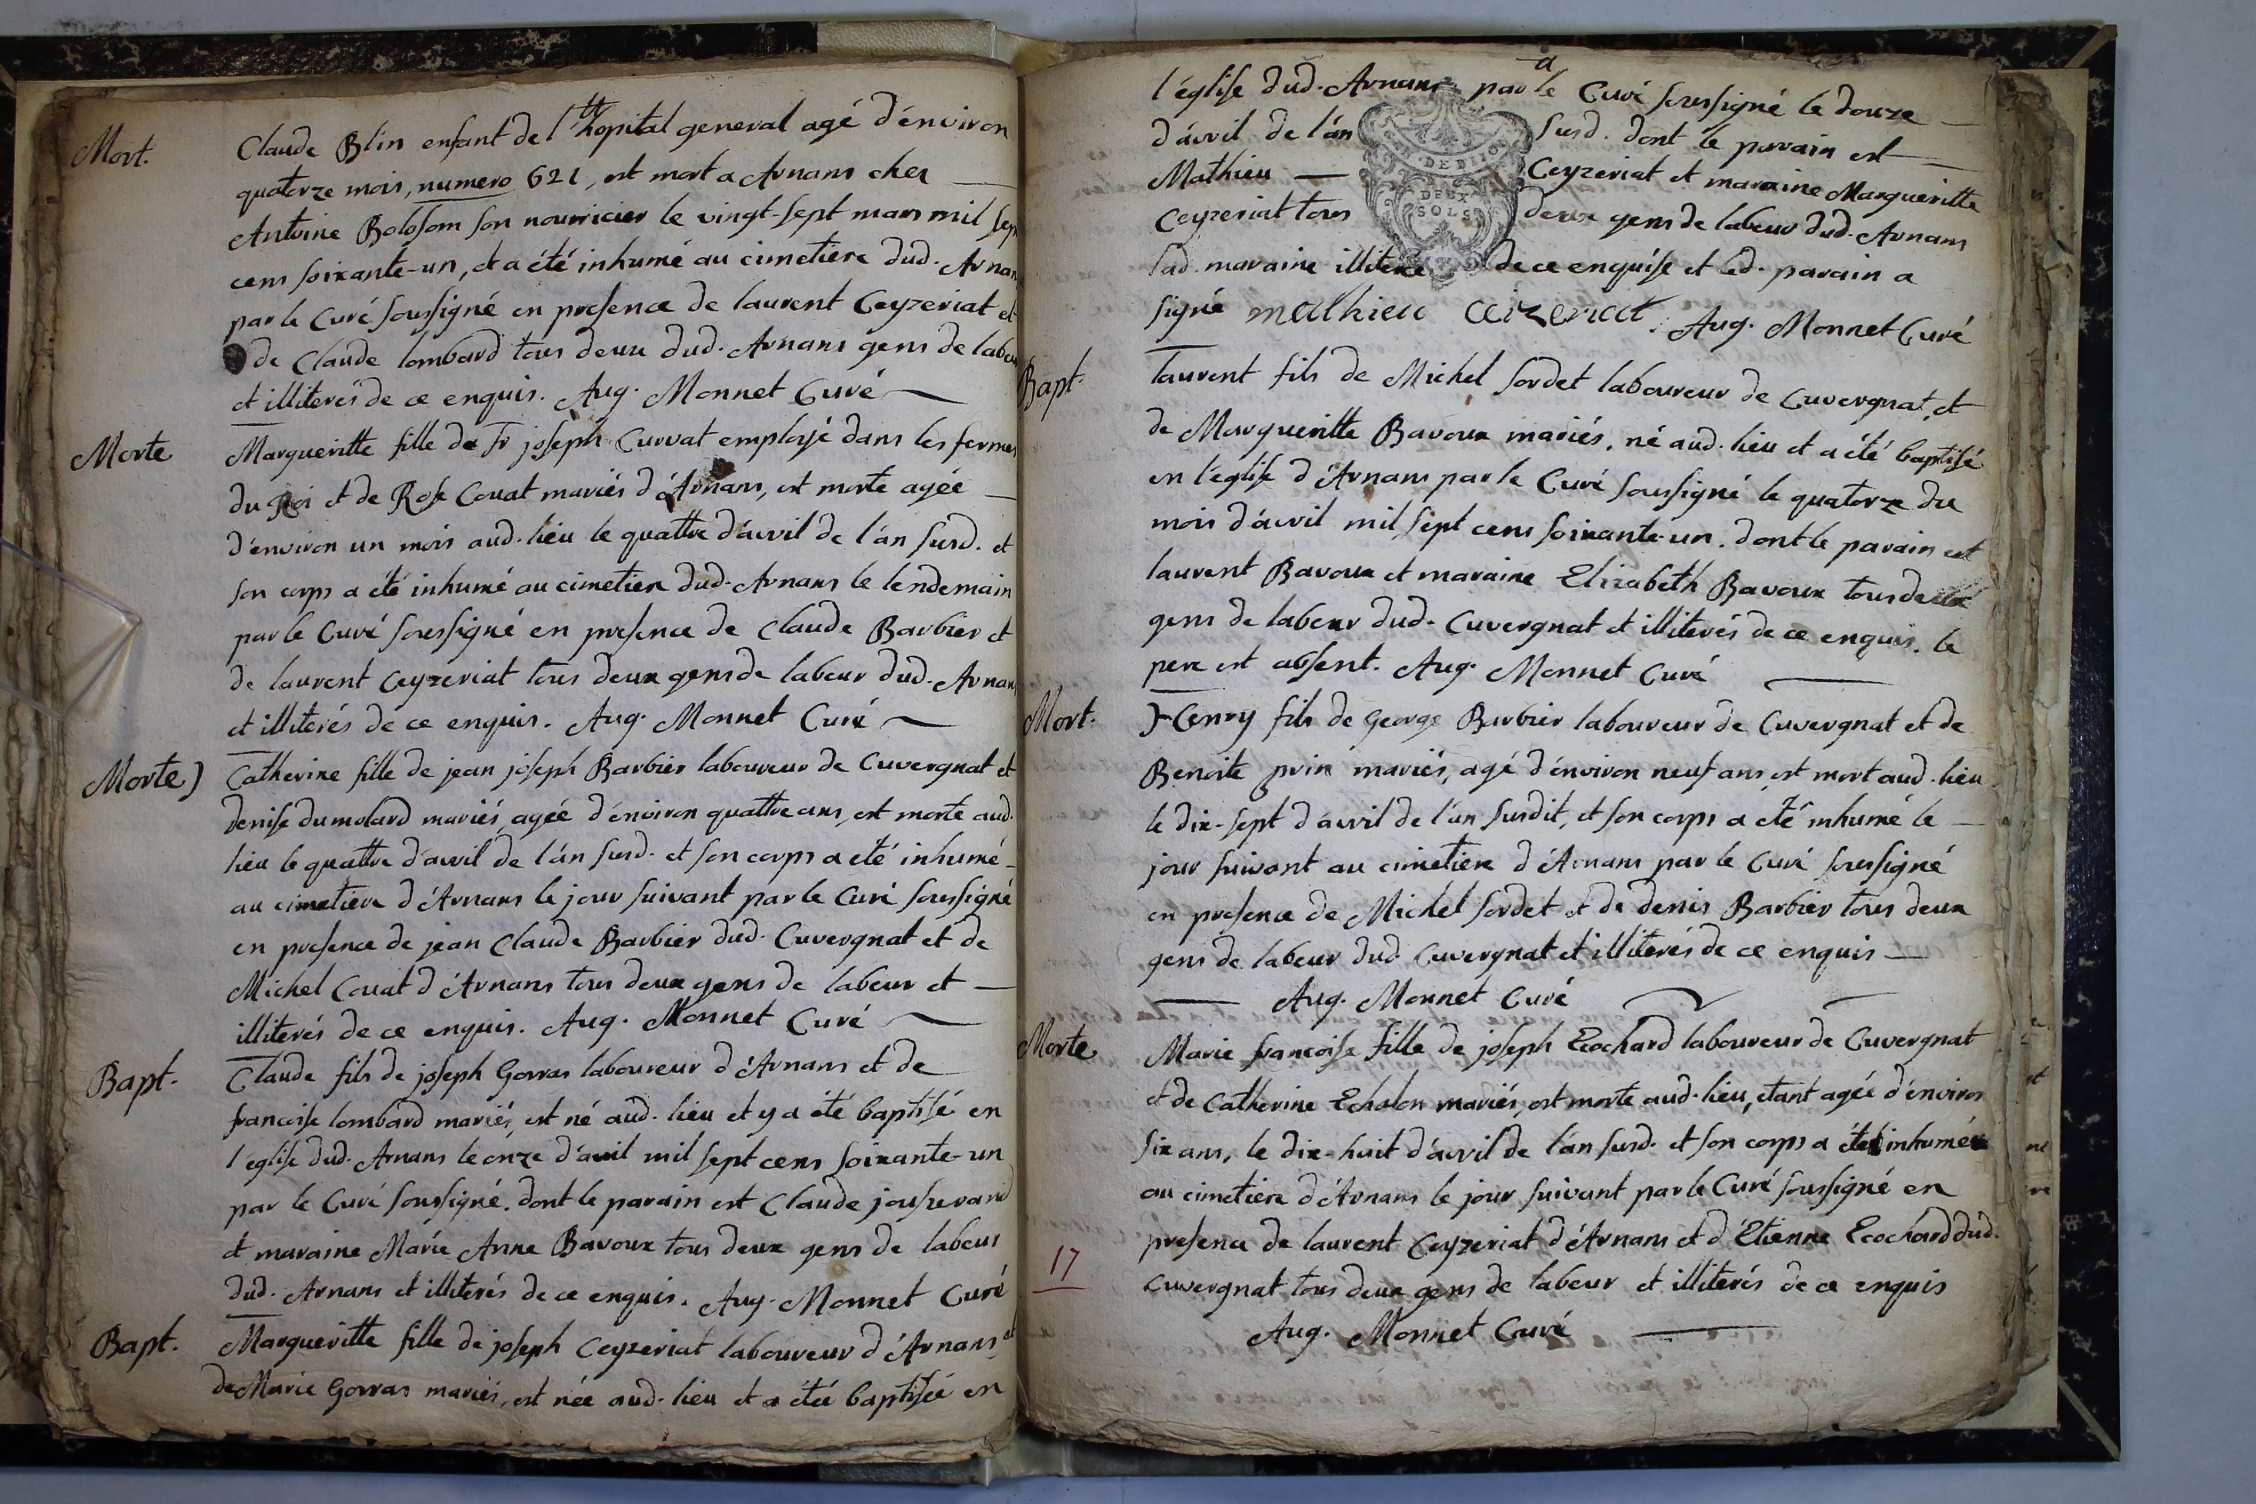 Mort.
Claude Blin enfant de l'hopital general agé d'énviron
quatorze mois, numero 621, est mort a Arnans chez
Antoine Bolosom son nourricier le vingt-sept mars mil sept
cens soixante-un, et a été inhumé au cimetiere dud. Arnans
par le Curé soussigné en presence de laurent Ceyzeriat et
de Claude lombard tous deux dud. Arnans gens de labeur
et illiterés de ce enquis. Aug. Monnet Curé
Morte
Margueritte fille de Fr joseph Curvat employé dans les fermes
du Roi et de Rose Couat mariés d'Arnans, est morte agée
d'environ un mois aud. lieu le quattre d'avril de l'an susd. et
son corps a été inhumé au cimetiere dud. Arnans le lendemain
par le Curé soussigné en presence de Claude Barbier et
de laurent Ceyzeriat tous deux gens de labeur dud. Arnans
et illiterés de ce enquis. Aug. Monnet Curé
Morte
Catherine fille de jean joseph Barbier laboureur de Cuvergnat et
denise dumolard mariés, agée d'énviron quattre ans, est morte aud.
lieu le quattre d'avril de l'an susd. et son corps a été inhumé
au cimetiere d'Arnans le jour suivant par le Curé soussigné
en presence de jean Claude Barbier dud. Cuvergnat et de
Michel Couat d'Arnans tous deux gens de labeur et
illiterés de ce enquis. Aug. Monnet Curé
Bapt.
Claude fils de joseph Gorras laboureur d'Arnans et de
francoise lombard mariés, est né aud. lieu et y a été baptisé en
l'église dud. Arnans le onze d'avril mil sept cens soixante-un
par le Curé soussigné. dont le parain est Claude jousserand
et maraine Marie Anne Bavoux tous deux gens de labeur
dud. Arnans et illiterés de ce enquis. Aug. Monnet Curé
Bapt.
Margueritte fille de joseph Ceyzeriat laboureur d'Arnans et
de Marie Gorras mariés, est née aud. lieu et a étée baptisée en
l'église dud. Arnans par le Curé soussigné le douze
d'avril de l'an susd. dont le parain est
Mathieu Ceyzeriat et maraine Margueritte
Ceyzeriat tous deux gens de labeur dud. Arnans
lad. maraine illiterée de ce enquise et led. parain a
signé mathieu ceizeriat. Aug. Monnet Curé
DE DIJO
DEUX
SOLS
Bapt.
laurent fils de Michel sordet laboureur de Cuvergnat, et
de Margueritte Bavoux mariés, né aud. lieu et a été baptisé
en l'église d'Arnans par le Curé soussigné le quatorze du
mois d'avril mil sept cens soixante-un. dont le parain est
laurent Bavoux et maraine Elizabeth Bavoux tous deux
gens de labeur dud. Cuvergnat et illiterés de ce enquis. le
pere est absent. Aug. Monnet Curé
Mort.
Henry fils de George Barbier laboureur de Cuvergnat et de
Benoite prin mariés, agé d'énviron neuf ans, est mort aud. lieu
le dix-sept d'avril de l'an susdit, et son corps a été inhumé le
jour suivant au cimetiere d'Arnans par le Curé soussigné
en presence de Michel sordet et de denis Barbier tous deux
gens de labeur dud Cuvergnat et illiterés de ce enquis
Aug. Monnet Curé
Morte
Marie francoise fille de joseph Ecochard laboureur de Cuvergnat
et de Catherine Echalon mariés, est morte aud. lieu, etant agée d'énviron
six ans, le dix-huit d'avril de l'an susd. et son corps a été inhumé
au cimetiere d'Arnans le jour suivant par le Curé soussigné en
presence de laurent Ceyzeriat d'Arnans et d'Etienne Ecochard dud.
Cuvergnat tous deux gens de labeur et illiterés de ce enquis
Aug. Monnet Curé
17